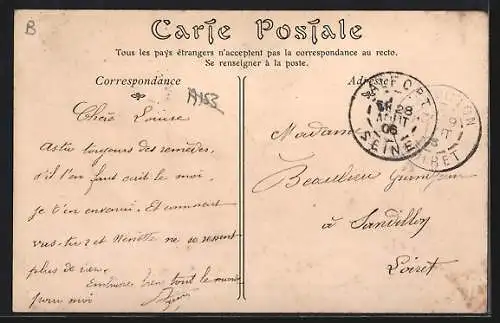 B
Carte Postale
Tous les pays étrangers n'acceptent pas la correspondance au recto.
Se renseigner à la poste.
Correspondance
Adresse
19153
Chère Louise
Astu toujours des remèdes,
s'il t'en faut écrit le moi
je t'en enverrai. Et comment
vas-tu? et ne se ressent
plus de rien.
Embrasse bien tout le monde
pour moi
Madame
Beaulieu
à Sandillon
Loiret
ALFORT
28
AOUT
06
SEINE
LOIRET